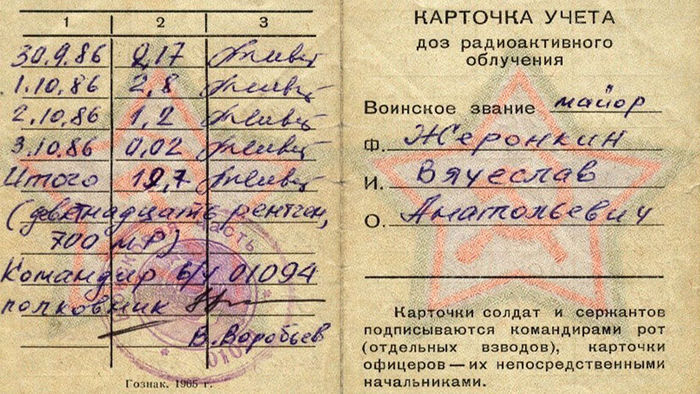 1 2 3
30.9.86 2,17
1.10.86 2,8
2.10.86 1,2
3.10.86 0,02
Итого 19,7
(девятнадцать рентген,
700 мР)
Командир в/ч 01094
полковник
В. Воробьев
Гознак. 1965 г.
КАРТОЧКА УЧЕТА
доз радиоактивного
облучения
Воинское звание майор
Ф. Жеронкин
И. Вячеслав
О. Анатольевич
Карточки солдат и сержантов
подписываются командирами рот
(отдельных взводов), карточки
офицеров — их непосредственными
начальниками.